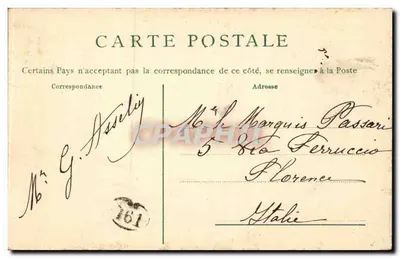 CARTE POSTALE
Certains Pays n'acceptant pas la correspondance de ce côté, se renseigner à la Poste
Correspondance
Adresse
Mr G. Asselin
Mr le Marquis Passari
5 Via Ferruccio
Florence
Italie
161
CPARAMA